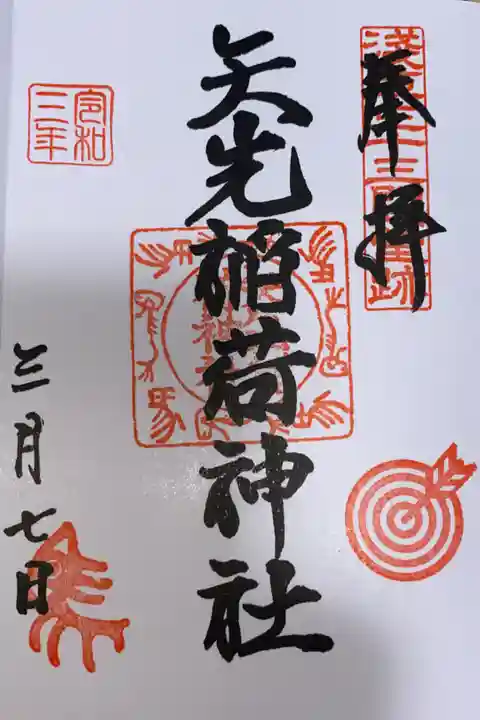 奉拝
淺草三十三間堂跡
矢先稲荷神社
令和
三年
三月七日